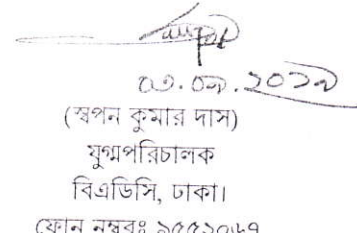 ০৩.০৯.২০১৯
(স্বপন কুমার দাস)
যুগ্মপরিচালক
বিএডিসি, ঢাকা।
ফোন নম্বরঃ ৯৫৫২০৬৭